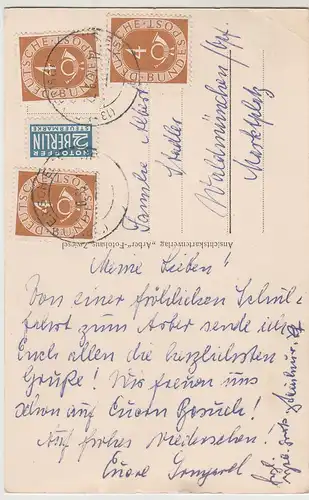 DEUTSCHE BUNDESPOST
4
DEUTSCHE BUNDESPOST
4
DEUTSCHE BUNDESPOST
4
NOTOPFER
2 BERLIN
STEUERMARKE
Familie Albert
Stadler
Waldmünchen
Marktplatz
Ansichtskartenverlag „Arber"-Fotohaus Zwiesel
Meine Lieben!
Von einer fröhlichen Schul-
fahrt zum Arber sende ich
Euch allen die herzlichsten
Grüße! Wir freuen uns
schon auf Euern Besuch!
Auf frohes Wiedersehen!
Eure Irmgard